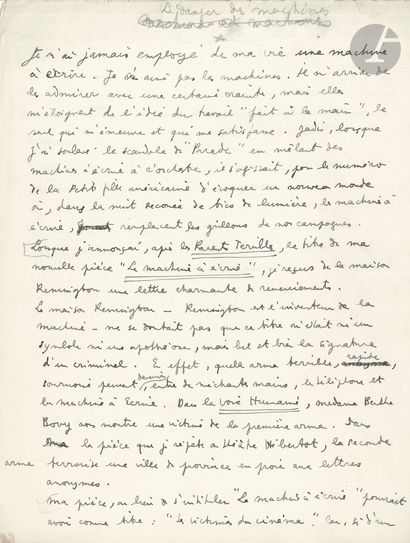 Le danger des machines
Je n'ai jamais employé de ma vie une machine
à écrire. Je n'aime pas les machines. Il m'arrive de
les admirer avec une certaine crainte, mais elles
m'éloignent de l'idée du travail "fait à la main", le
seul qui m'émeuve et qui me satisfasse. Jadis, lorsque
j'ai soulevé le scandale de "Parade" en mêlant des
machines à écrire à l'orchestre, il s'agissait, pour le numéro
de la petite fille américaine d'évoquer un nouveau monde
où, dans la nuit secouée de tics de lumière, les machines à
écrire, remplacent les grillons de nos campagnes.
Lorsque j'annonçai après les Parents Terribles, le titre de ma
nouvelle pièce "La machine à écrire", je reçus de la maison
Remington une lettre charmante de remerciements.
La maison Remington — Remington est l'inventeur de la
machine — ne se doutait pas que ce titre n'était ni un
symbole ni une apothéose, mais bel et bien la signature
d'un criminel. En effet, quelle arme terrible, rapide
sournoise peuvent devenir, entre de méchantes mains, le téléphone et
la machine à Ecrire. Dans la Voix Humaine, madame Berthe
Bovy nous montre une victime de la première arme. Dans
la pièce que je répète au théâtre Hébertot, la seconde
arme terrorise une ville de province en proie aux lettres
anonymes.
Ma pièce, au lieu de s'intituler "La machine à écrire" pourrait
avoir comme titre : "Les victimes du cinéma". Car, si d'un